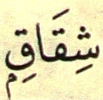 شِقَاقِۭ